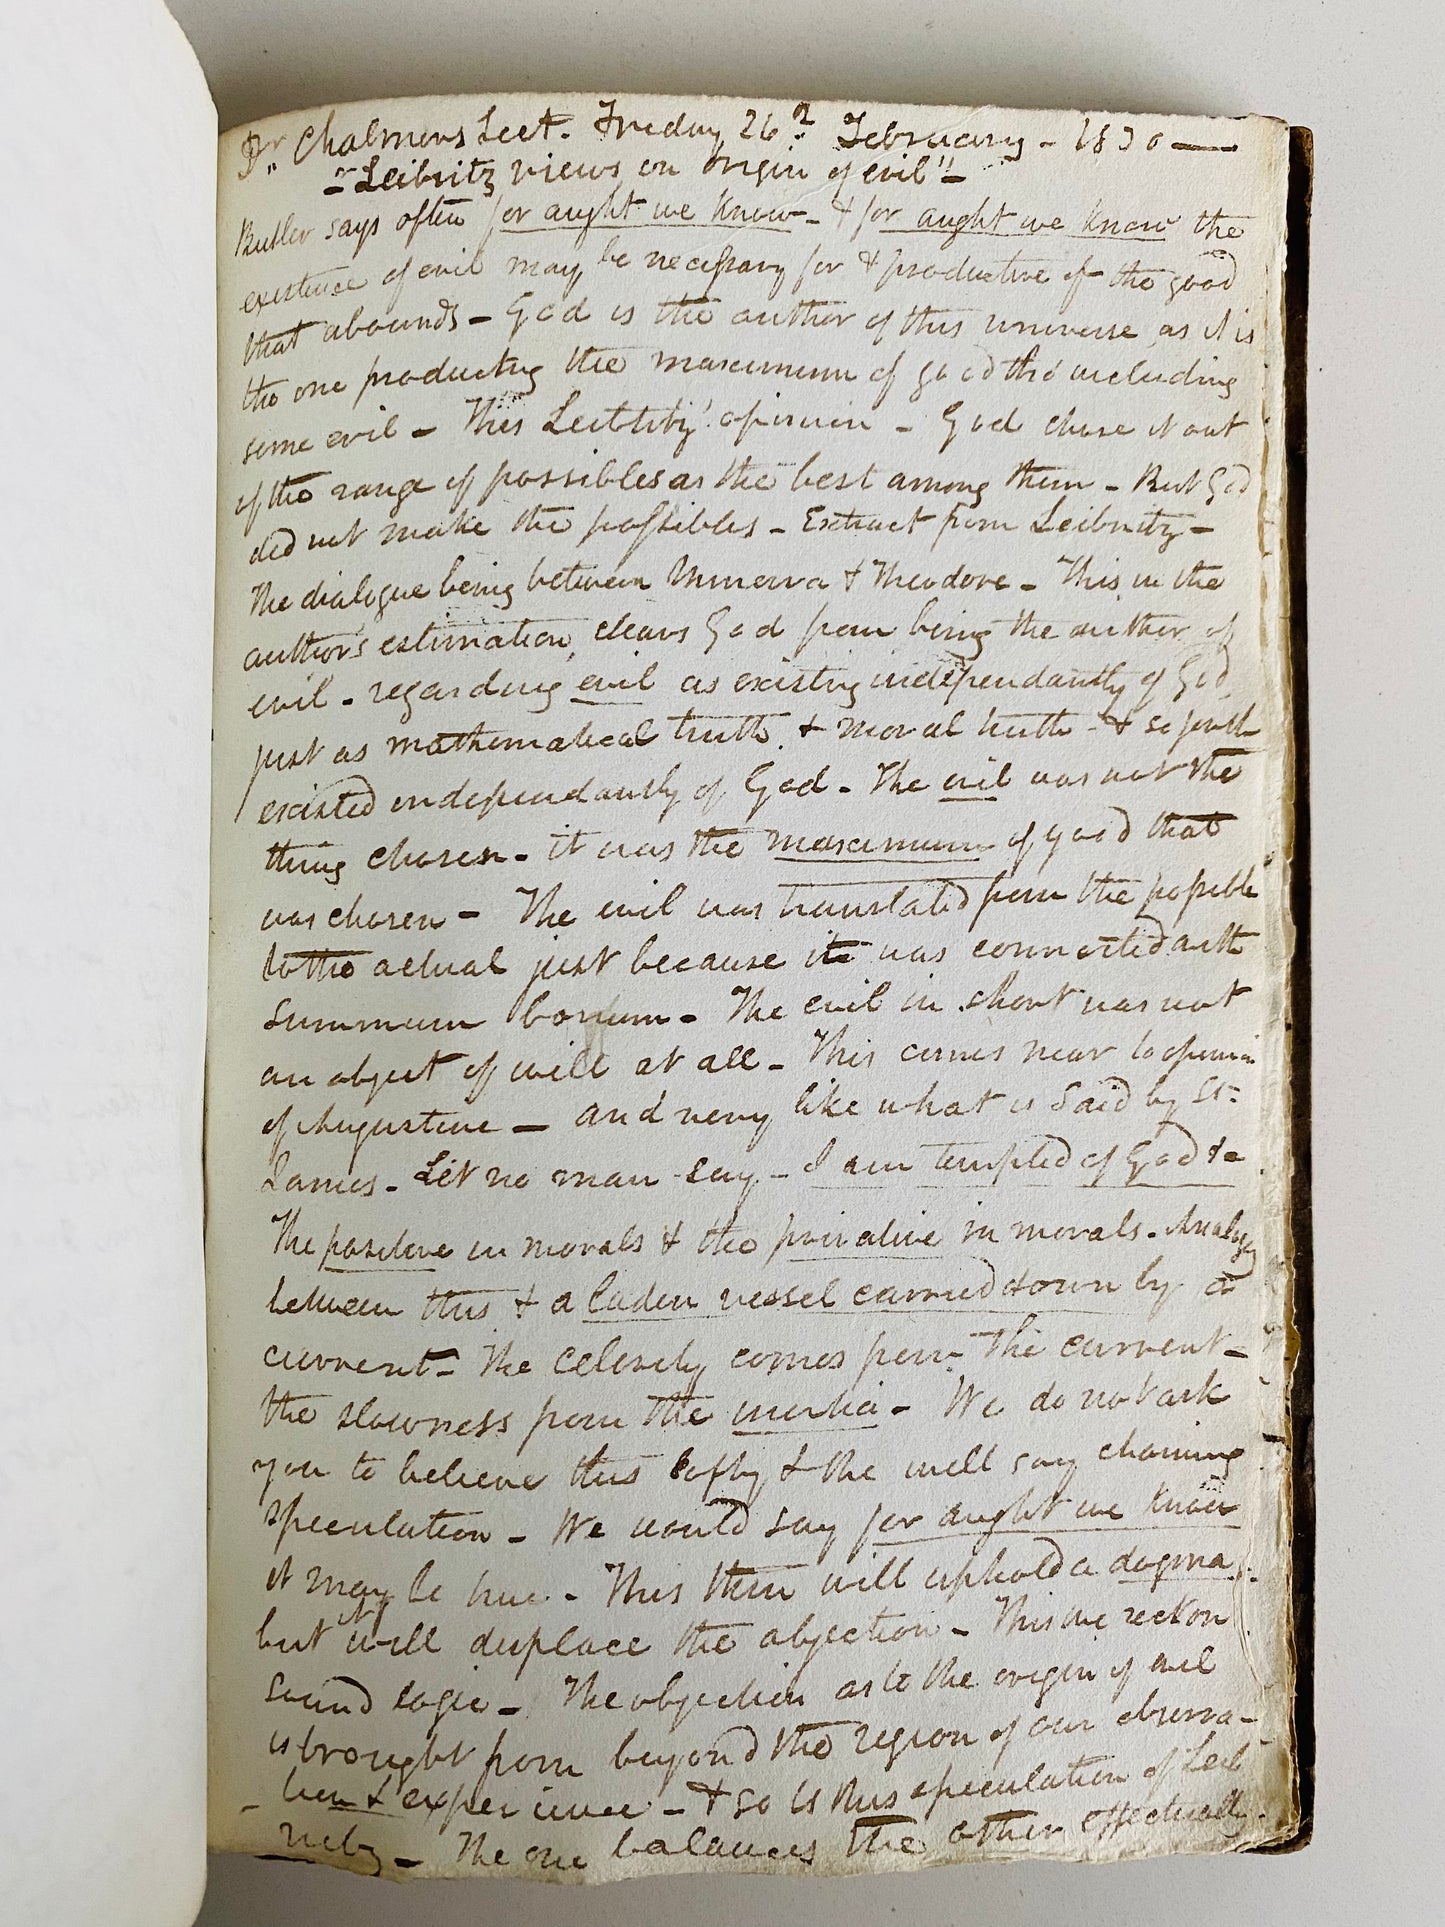 Dr Chalmers Lect. Friday 26th February - 1830 —
- "Leibnitz views on origin of evil" -
Butler says often for aught we know - & for aught we know the
existence of evil may be necessary for & productive of the good
that abounds - God is the author of this universe as it is
the one producing the maximum of good tho' including
some evil - This Leibtitz' opinion - God chose it out
of the range of possibles as the best among them - But God
did not make the possibles - Extract from Leibnitz -
The dialogue being between Minerva & Theodore - This in the
author's estimation, clears God from being the author of
evil - regarding evil as existing independantly of God,
just as mathematical truth & moral truth - & so forth
existed independantly of God - The evil was not the
thing chosen - it was the maximum of good that
was chosen - The evil was translated from the possible
to the actual just because it was connected with
summum bonum - The evil in short was not
an object of will at all - This comes near to opinion
of Augustine — and very like what is said by St.
James - Let no man say - I am tempted of God &c
The positive in morals & the privative in morals - Analogy
between this & a laden vessel carried down by a
current - The celerity comes from the current -
the slowness from the inertia - We do not ask
you to believe this lofty & the well say charming
speculation - We would say for aught we know
it may be true - This then will uphold a dogma
but it will displace the objection - This we reckon
sound logic - The objection as to the origin of evil
is brought from beyond the region of our observa-
tion & experience - & so is this speculation of Leib
- nitz - The one balances the other effectually.